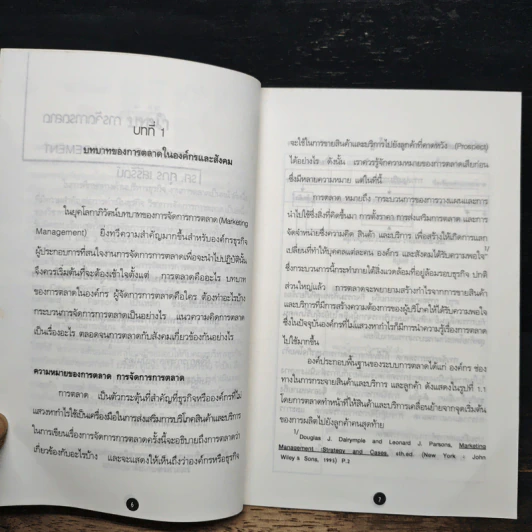 บทที่ 1
บทบาทของการตลาดในองค์กรและสังคม
ในยุคโลกาภิวัตน์บทบาทของการจัดการการตลาด (Marketing
Management) ยิ่งทวีความสำคัญมากขึ้นสำหรับองค์กรธุรกิจ
ผู้ประกอบการที่สนใจงานการจัดการการตลาดเพื่อจะนำไปปฏิบัตินั้น
จึงควรเริ่มต้นที่จะต้องเข้าใจตั้งแต่ การตลาดคืออะไร บทบาท
ของการตลาดในองค์กร ผู้จัดการการตลาดคือใคร ต้องทำอะไรบ้าง
กระบวนการจัดการการตลาดเป็นอย่างไร แนวความคิดการตลาด
เป็นเรื่องอะไร ตลอดจนการตลาดกับสังคมเกี่ยวข้องกันอย่างไร
ความหมายของการตลาด การจัดการการตลาด
การตลาด เป็นตัวกระตุ้นที่สำคัญที่ธุรกิจหรือองค์กรที่ไม่
แสวงหากำไรใช้เป็นเครื่องมือในการส่งเสริมการบริโภคสินค้าและบริการ
ในการเขียนเรื่องการจัดการการตลาดครั้งนี้จะอธิบายถึงการตลาดว่า
เกี่ยวข้องกับอะไรบ้าง และจะแสดงให้เห็นถึงว่าองค์กรหรือธุรกิจ
6
จะใช้ในการขายสินค้าและบริการไปยังลูกค้าที่คาดหวัง (Prospect)
ได้อย่างไร ดังนั้น เราควรรู้จักความหมายของการตลาดเสียก่อน
ซึ่งมีหลายความหมาย แต่ในที่นี้
การตลาด หมายถึง "กระบวนการของการวางแผนและการ
นำไปใช้ซึ่งสิ่งที่คิดขึ้นมา การตั้งราคา การส่งเสริมการตลาด และการ
จัดจำหน่ายซึ่งความคิด สินค้า และบริการ เพื่อสร้างให้เกิดการแลก
เปลี่ยนที่ทำให้บุคคลแต่ละคน องค์กร และสังคมได้รับความพอใจ" 1/
ซึ่งกระบวนการนี้กระทำภายใต้สิ่งแวดล้อมที่อยู่ล้อมรอบธุรกิจ ปกติ
ส่วนใหญ่แล้ว การตลาดจะพยายามสร้างกำไรจากการขายสินค้า
และบริการที่มีการสร้างความต้องการของผู้บริโภคให้ได้รับความพอใจ
ซึ่งในปัจจุบันองค์กรที่ไม่แสวงหากำไรก็มีการนำความรู้เรื่องการตลาด
ไปใช้มากขึ้น
องค์ประกอบพื้นฐานของระบบการตลาดได้แก่ องค์กร ช่อง
ทางในการกระจายสินค้าและบริการ และลูกค้า ดังแสดงในรูปที่ 1.1
โดยการตลาดทำหน้าที่ให้สินค้าและบริการเคลื่อนย้ายจากจุดเริ่มต้น
ของการผลิตไปยังลูกค้าคนสุดท้าย
1/ Douglas J. Dalrymple and Leonard J. Parsons, Marketing
Management : Strategy and Cases, 6th.ed. (New York : John
Wiley & Sons, 1995) P.3
7